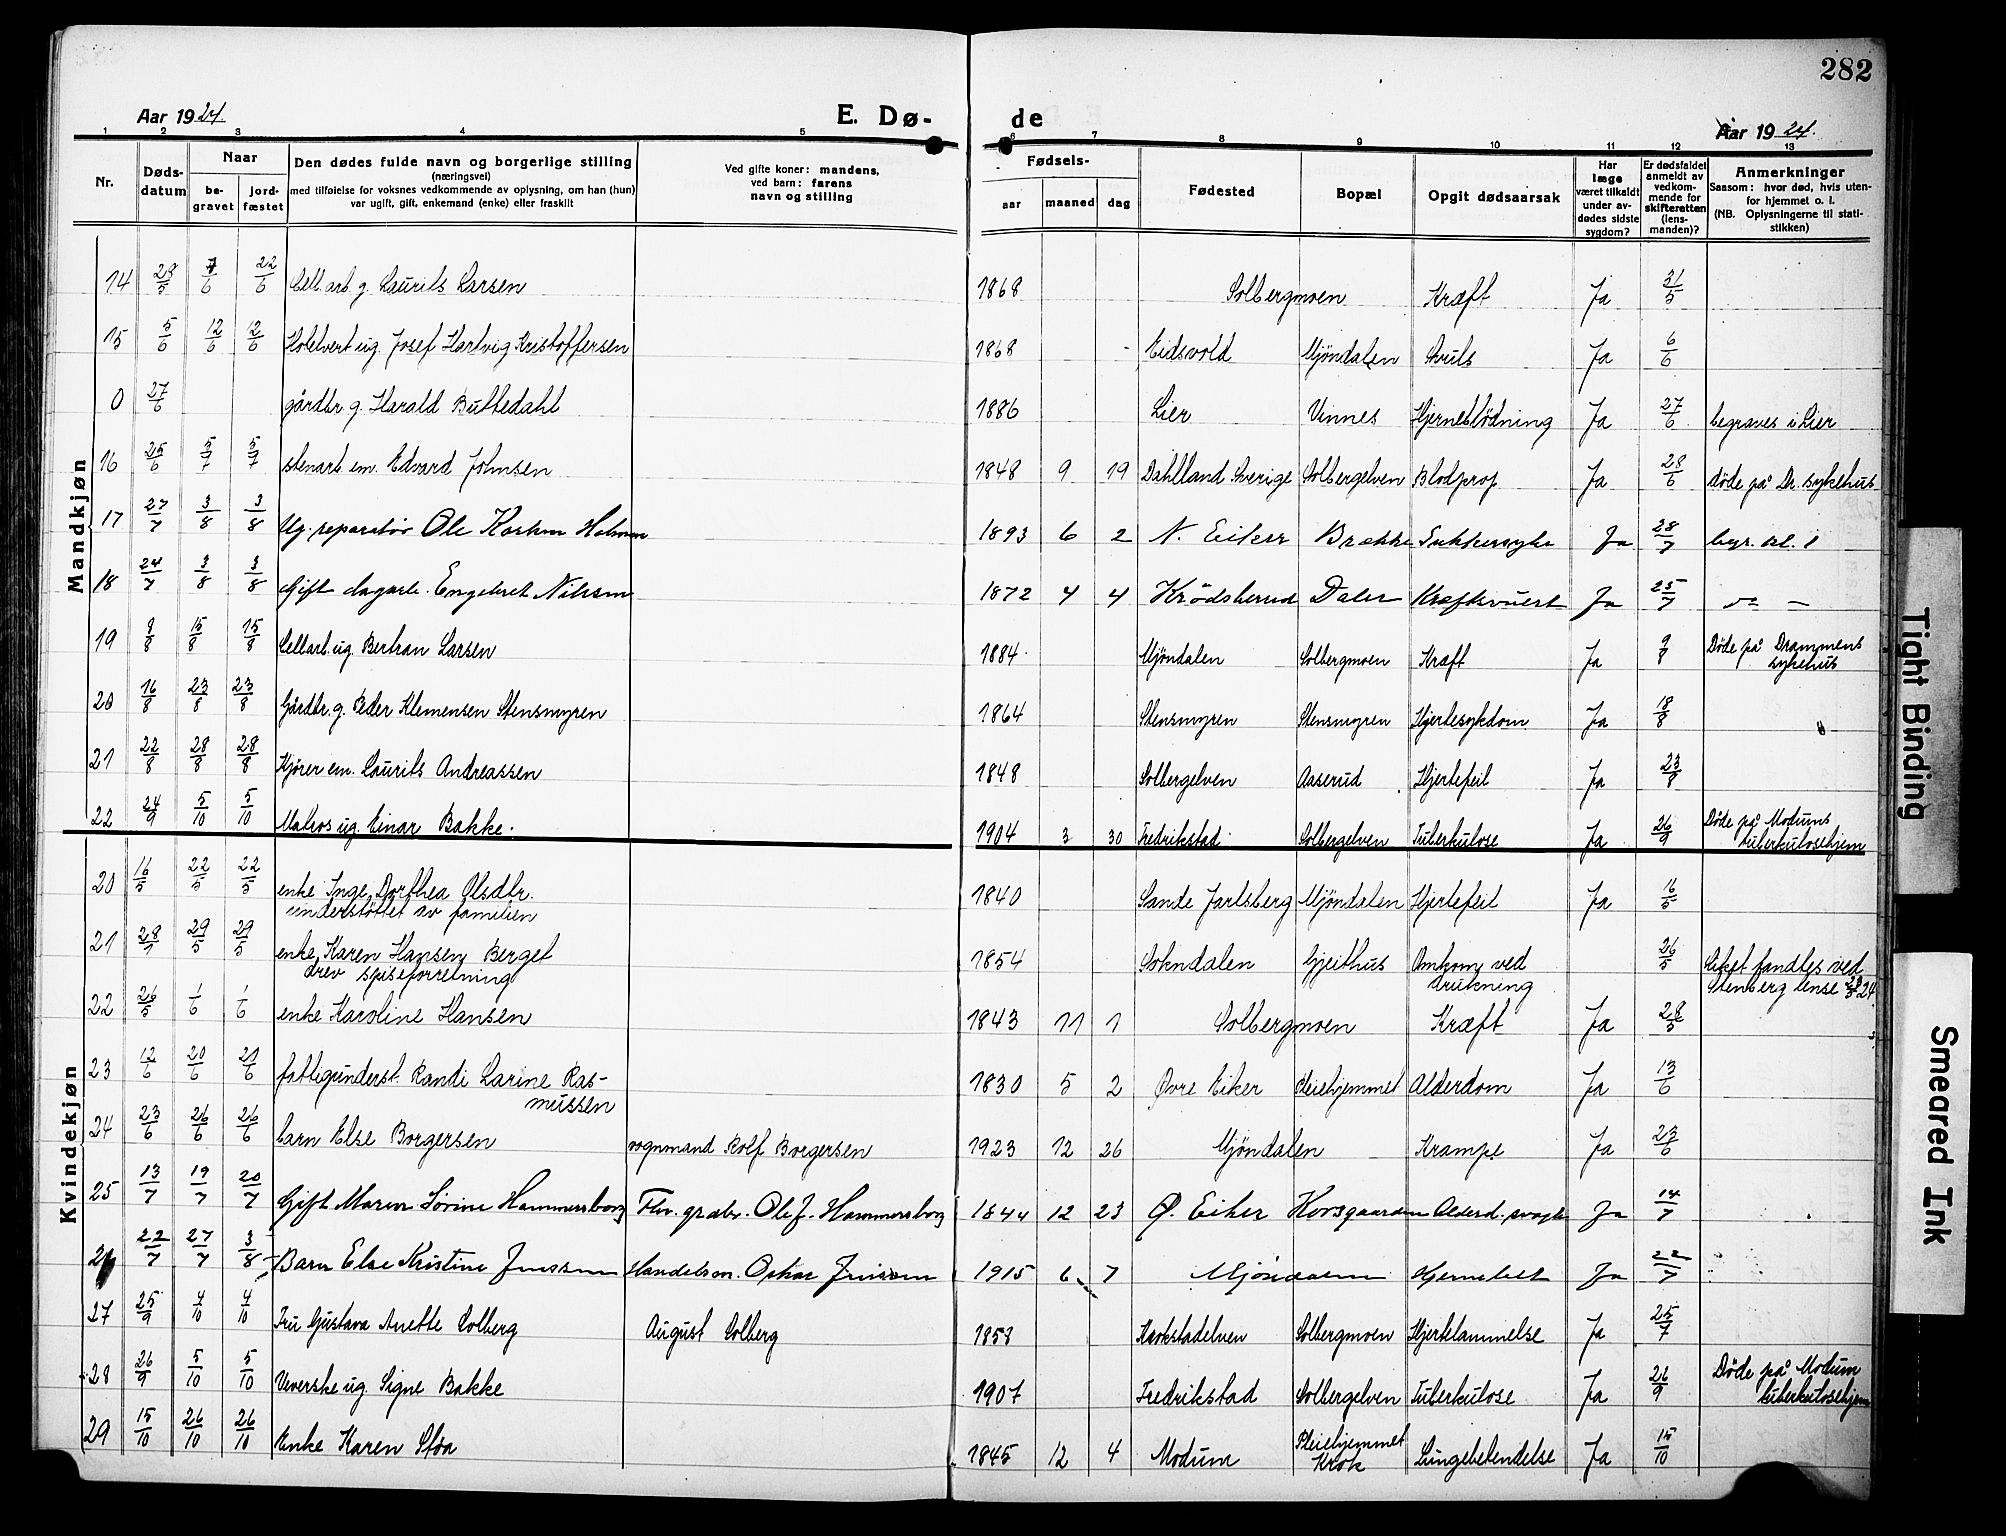 282
Aar 1924.
E. Dø-
de
Aar 1924.
1 2 3 4 5 6 7 8 9 10 11 12 13
Nr.
Døds-
datum
Naar
be-
gravet
jord-
fæstet
Den dødes fulde navn og borgerlige stilling
(næringsvei)
med tilføielse for voksnes vedkommende av oplysning, om han (hun)
var ugift, gift, enkemand (enke) eller fraskilt
Ved gifte koner: mandens,
ved barn: farens
navn og stilling
Fødsels-
aar
maaned
dag
Fødested
Bopæl
Opgit dødsaarsak
Har
læge
været tilkaldt
under av-
dødes sidste
sygdom?
Er dødsfaldet
anmeldt av
vedkom-
mende for
skifteretten
(lens-
manden)?
Anmerkninger
Saasom: hvor død, hvis uten-
for hjemmet o. l.
(NB. Oplysningerne til stati-
stikken)
Mandkjøn
14 7/6 22/6 Cellarb. g. Laurits Larsen 1868 Solbergmoen Kræft Ja 31/5
15 5/6 12/6 12/6 Josef Hartvig Kristoffersen 1868 Eidsvold Mjöndalen Ja 6/6
0 27/6 gårdbr g. Harald Buttedahl 1886 Lier Vinnes Hjerneblödning Ja 27/6 begraves i Lier
16 25/6 5/7 5/7 stenarb. em. Edvard Johnsen 1848 9 19 Dahlland Sverige Solbergelven Blodprop Ja 28/6 Døde på Dr. sykehus
17 27/7 3/8 3/8 Ug. reparatör Ole 1893 6 2 N. Eiker Brække Sukkersyke Ja 28/7
18 24/7 3/8 3/8 Gift dagarb. Engebret Nilsen 1872 4 4 Krödsherad Daler Ja 25/7
19 8/8 15/8 15/8 Cellarb. ug. Bertran Larsen 1884 Mjöndalen Solbergmoen Kræft Ja 9/8 Døde på Drammens
sykehus
20 16/8 23/8 23/8 Gårdbr. g. Peder Klemensen Stensmyren 1864 Stensmyren Stensmyren Hjertesykdom Ja 18/8
21 22/8 28/8 28/8 Kjörer em. Laurits Andreassen 1848 Solbergelven Aaserud Hjertefeil Ja 23/8
22 24/9 5/10 5/10 Matros ug. Einar Bakke. 1904 3 30 Fredrikstad Solbergelven Tuberkulose Ja 26/9 Døde på Modums
tuberkulosehjem
Kvindekjøn
20 16/5 22/5 22/5 enke Inge Dorthea Olsdtr. 1840 Sande Jarlsberg Mjöndalen Hjertefeil Ja 16/5
understöttet av familien
21 29/5 29/5 enke Karen Hansen Berget 1854 Sokndalen Gjeithus Omkom ved 26/5 Liket fandtes ved
drev spiseforretning drukning Stenberg lense
22 26/5 1/6 1/6 enke Karoline Hansen 1843 11 1 Solbergmoen Kræft Ja 28/5
23 12/6 20/6 20/6 fattigunderst. Randi Larine Ras- 1830 5 2 Øvre Eiker Pleiehjemmet Alderdom Ja 13/6
mussen
24 23/6 26/6 26/6 barn Else Borgersen vognmand Rolf Borgersen 1923 12 26 Mjöndalen Krampe Ja 23/6
25 13/7 19/7 20/7 Gift Maren Sörine Hammersborg Ole J. Hammersborg 1844 12 23 Ø. Eiker Korsgaarden Ja 14/7
22/7 27/7 3/8 Barn Else Kristine Jenssen Oskar Jenssen 1915 6 7 Mjöndalen Ja 22/7
27 25/9 4/10 4/10 Fru Gustava Anette Solberg August Solberg 1853 Krokstadelven Solbergmoen Hjertelammelse Ja 25/7
28 26/9 5/10 5/10 Væverske ug. Signe Bakke 1907 Fredrikstad Solbergelven Tuberkulose Ja 26/9 Døde på Modum
tuberkulosehjem
29 15/10 26/10 26/10 Enke Karen Stöa 1845 12 4 Modum Pleiehjemmet
Krok Lungebetendelse Ja 15/10
Tight Binding
Smeared Ink